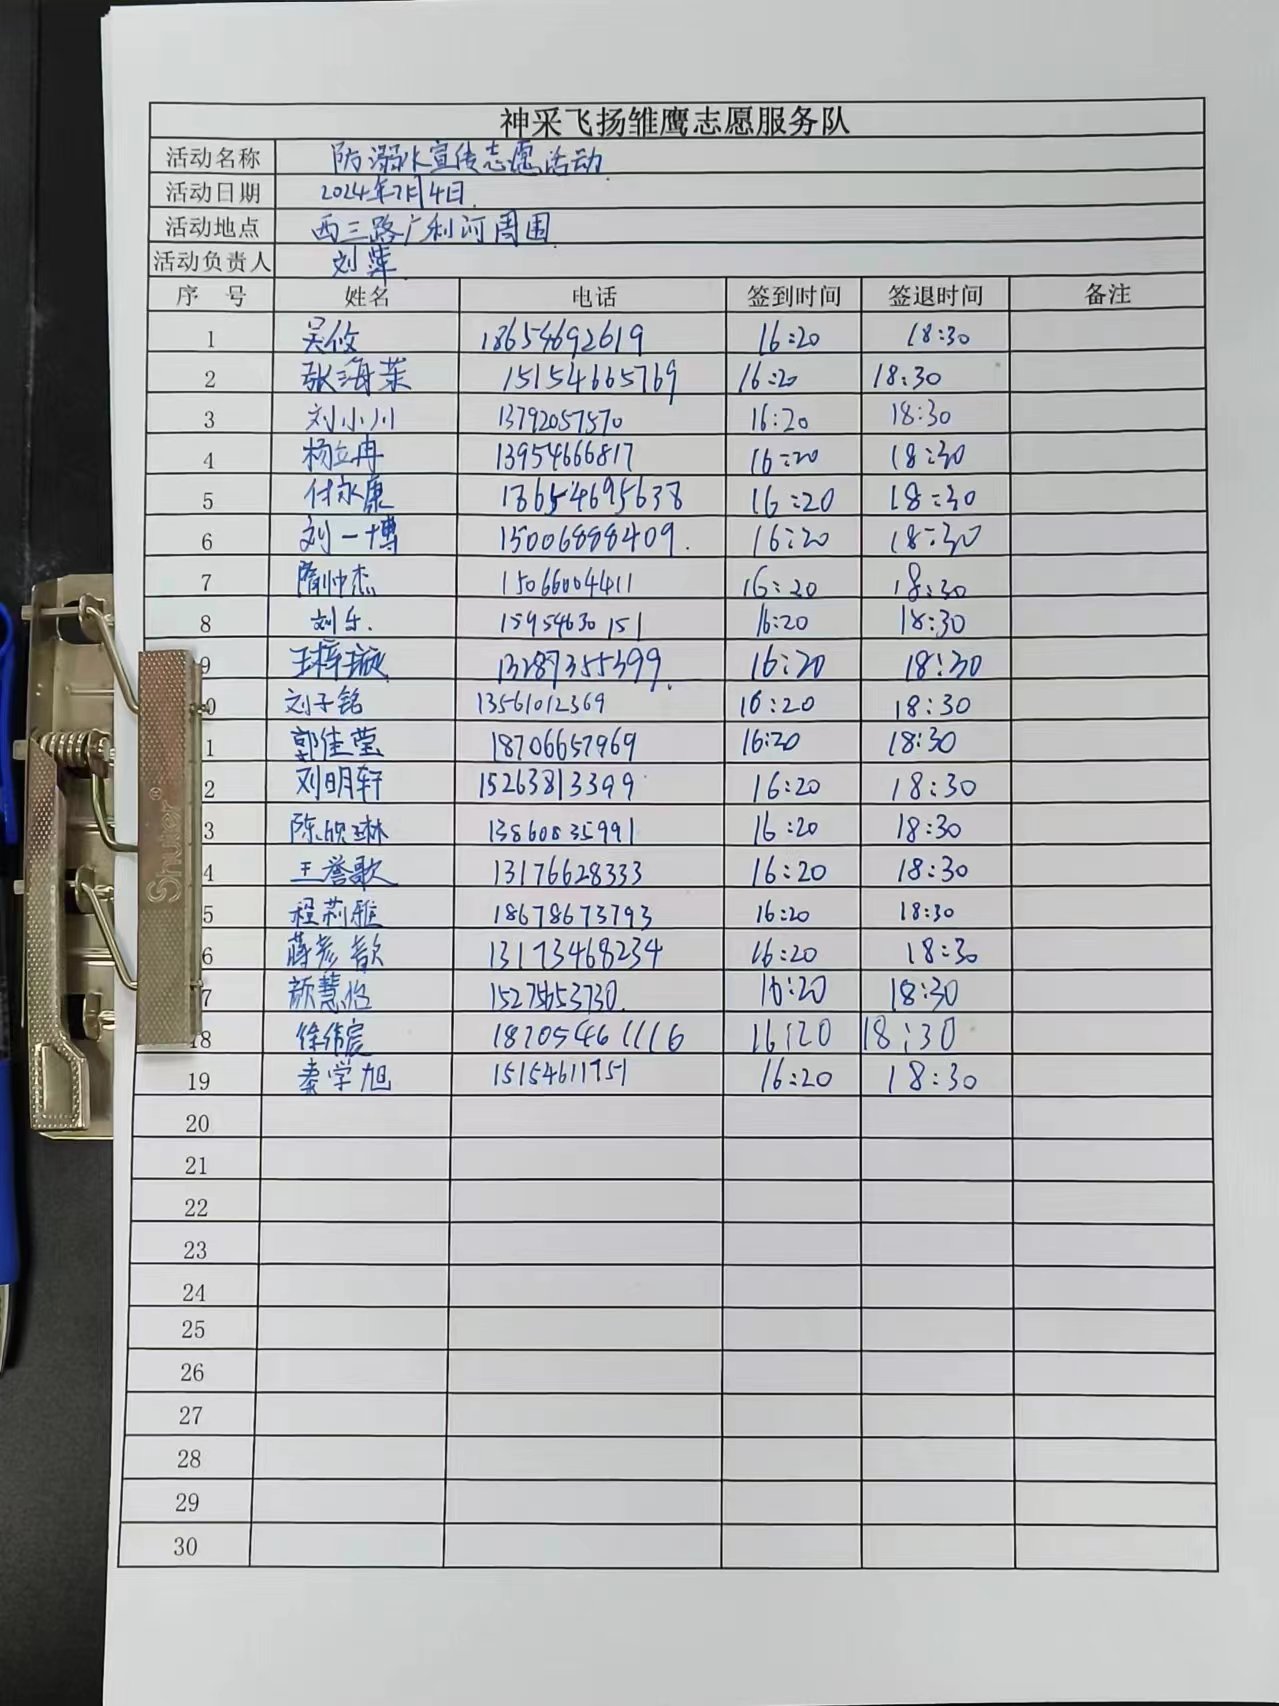 神采飞扬雏鹰志愿服务队
活动名称 防溺水宣传志愿活动
活动日期 2024年7月4日
活动地点 西三路广利河周围
活动负责人 刘萍
序 号 姓名 电话 签到时间 签退时间 备注
1 吴攸 18654692619 16:20 18:30
2 张海莱 15154665769 16:20 18:30
3 刘小川 13792057570 16:20 18:30
4 杨立冉 13954666817 16:20 18:30
5 付永康 18654695638 16:20 18:30
6 刘一博 15006888409. 16:20 18:30
7 隋帅杰 15066004411 16:20 18:30
8 刘乐. 15954630151 16:20 18:30
9 王梓璇 13287355399. 16:20 18:30
0 刘子铭 13561012369 16:20 18:30
1 郭佳莹 18706657969 16:20 18:30
2 刘明轩 15263813399 16:20 18:30
3 陈欣琳 13860835991 16:20 18:30
4 王誉歌 13176628333 16:20 18:30
5 程莉雅 18678673793 16:20 18:30
6 蒋彦歆 13173468234 16:20 18:30
7 颜慧怡 16:20 18:30
18 徐伟宸 18705461116 16:20 18:30
19 秦学旭 15154611751 16:20 18:30
20
21
22
23
24
25
26
27
28
29
30
Shuter®